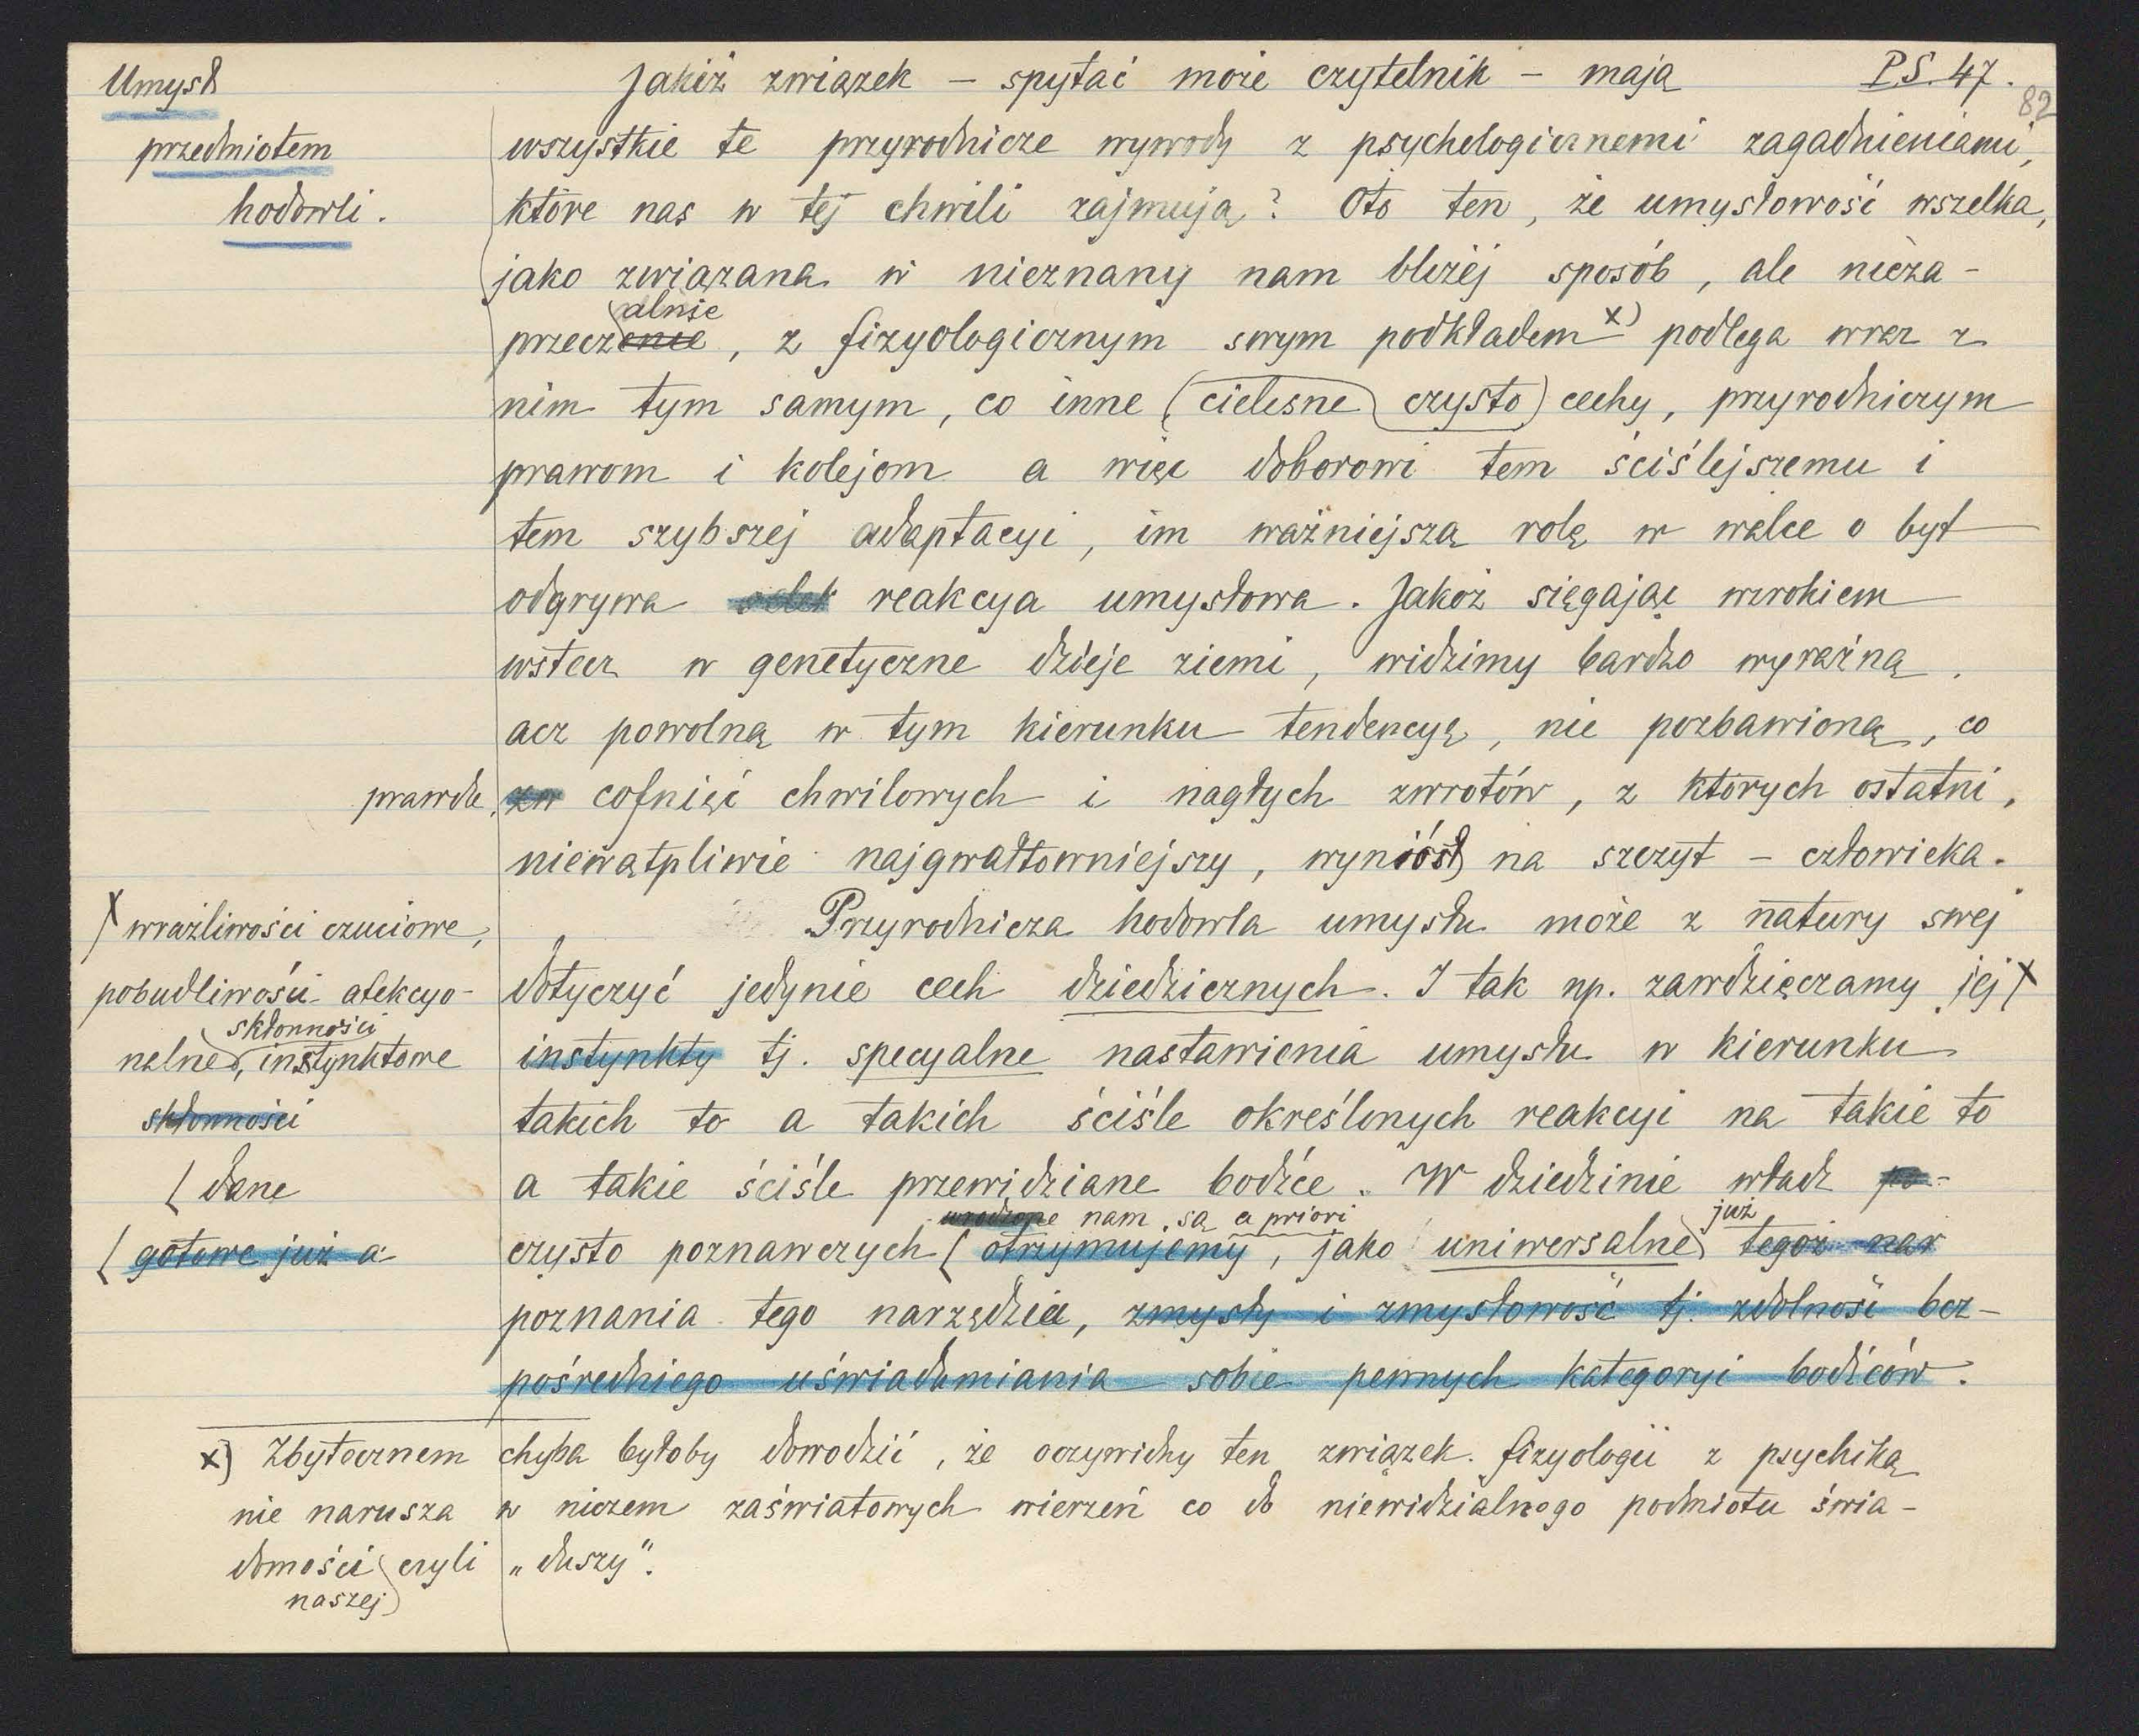 Umysł
przedmiotem
hodowli.
P.S. 47.
82
Jakiż związek – spytać może czytelnik – mają
wszystkie te przyrodnicze wywody z psychologicznemi zagadnieniami,
które nas w tej chwili zajmują? Oto ten, że umysłowość wszelka,
jako związana w nieznany nam bliżej sposób, ale nieza-
alnie
przeczenie, z fizyologicznym swym podkładem x) podlega wraz z
nim tym samym, co inne (cielesne czysto) cechy, przyrodniczym
prawom i kolejom a więc doborowi tem ściślejszemu i
tem szybszej adaptacyi, im ważniejszą rolę w walce o byt
odgrywa selek reakcya umysłowa. Jakoż sięgając wzrokiem
wstecz w genetyczne dzieje ziemi, widzimy bardzo wyraźną,
acz powolną w tym kierunku tendencyę, nie pozbawioną, co
prawda, zw cofnięć chwilowych i nagłych zwrotów, z których ostatni,
niewątpliwie najgwałtowniejszy, wyniósł na szczyt – człowieka.
Przyrodnicza hodowla umysłu może z natury swej
dotyczyć jedynie cech dziedzicznych. I tak np. zawdzięczamy jej x
x wrażliwości czuciowe,
pobudliwości afekcyo-
skłonności
nalne, instynktowe
skłonności
instynkty tj. specyalne nastawienia umysłu w kierunku
takich to a takich ściśle określonych reakcyi na takie to
a takie ściśle przewidziane bodźce. W dziedzinie władz po-
(dane
(gotowe już a
wrodzone nam są a priori
już
czysto poznawczych (otrzymujemy, jako uniwersalne tegoż nar
poznania tego narzędzia, zmysły i zmysłowość tj. zdolność bez-
pośredniego uświadamiania sobie pewnych kategoryi bodźców.
x) Zbytecznem chyba byłoby dowodzić, że oczywidny ten związek fizyologii z psychiką
nie narusza w niczem zaświatowych wierzeń co do niewidzialnego podmiotu świa-
domości czyli „duszy".
naszej